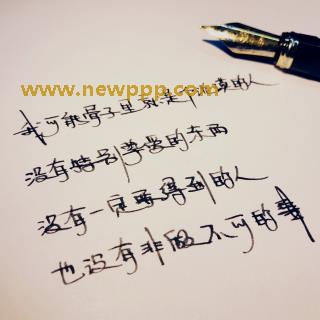 www.newppp.com
我可能骨子里就是个的人
没有特别的东西
没有一定要得到的人
也没有非做不可的事